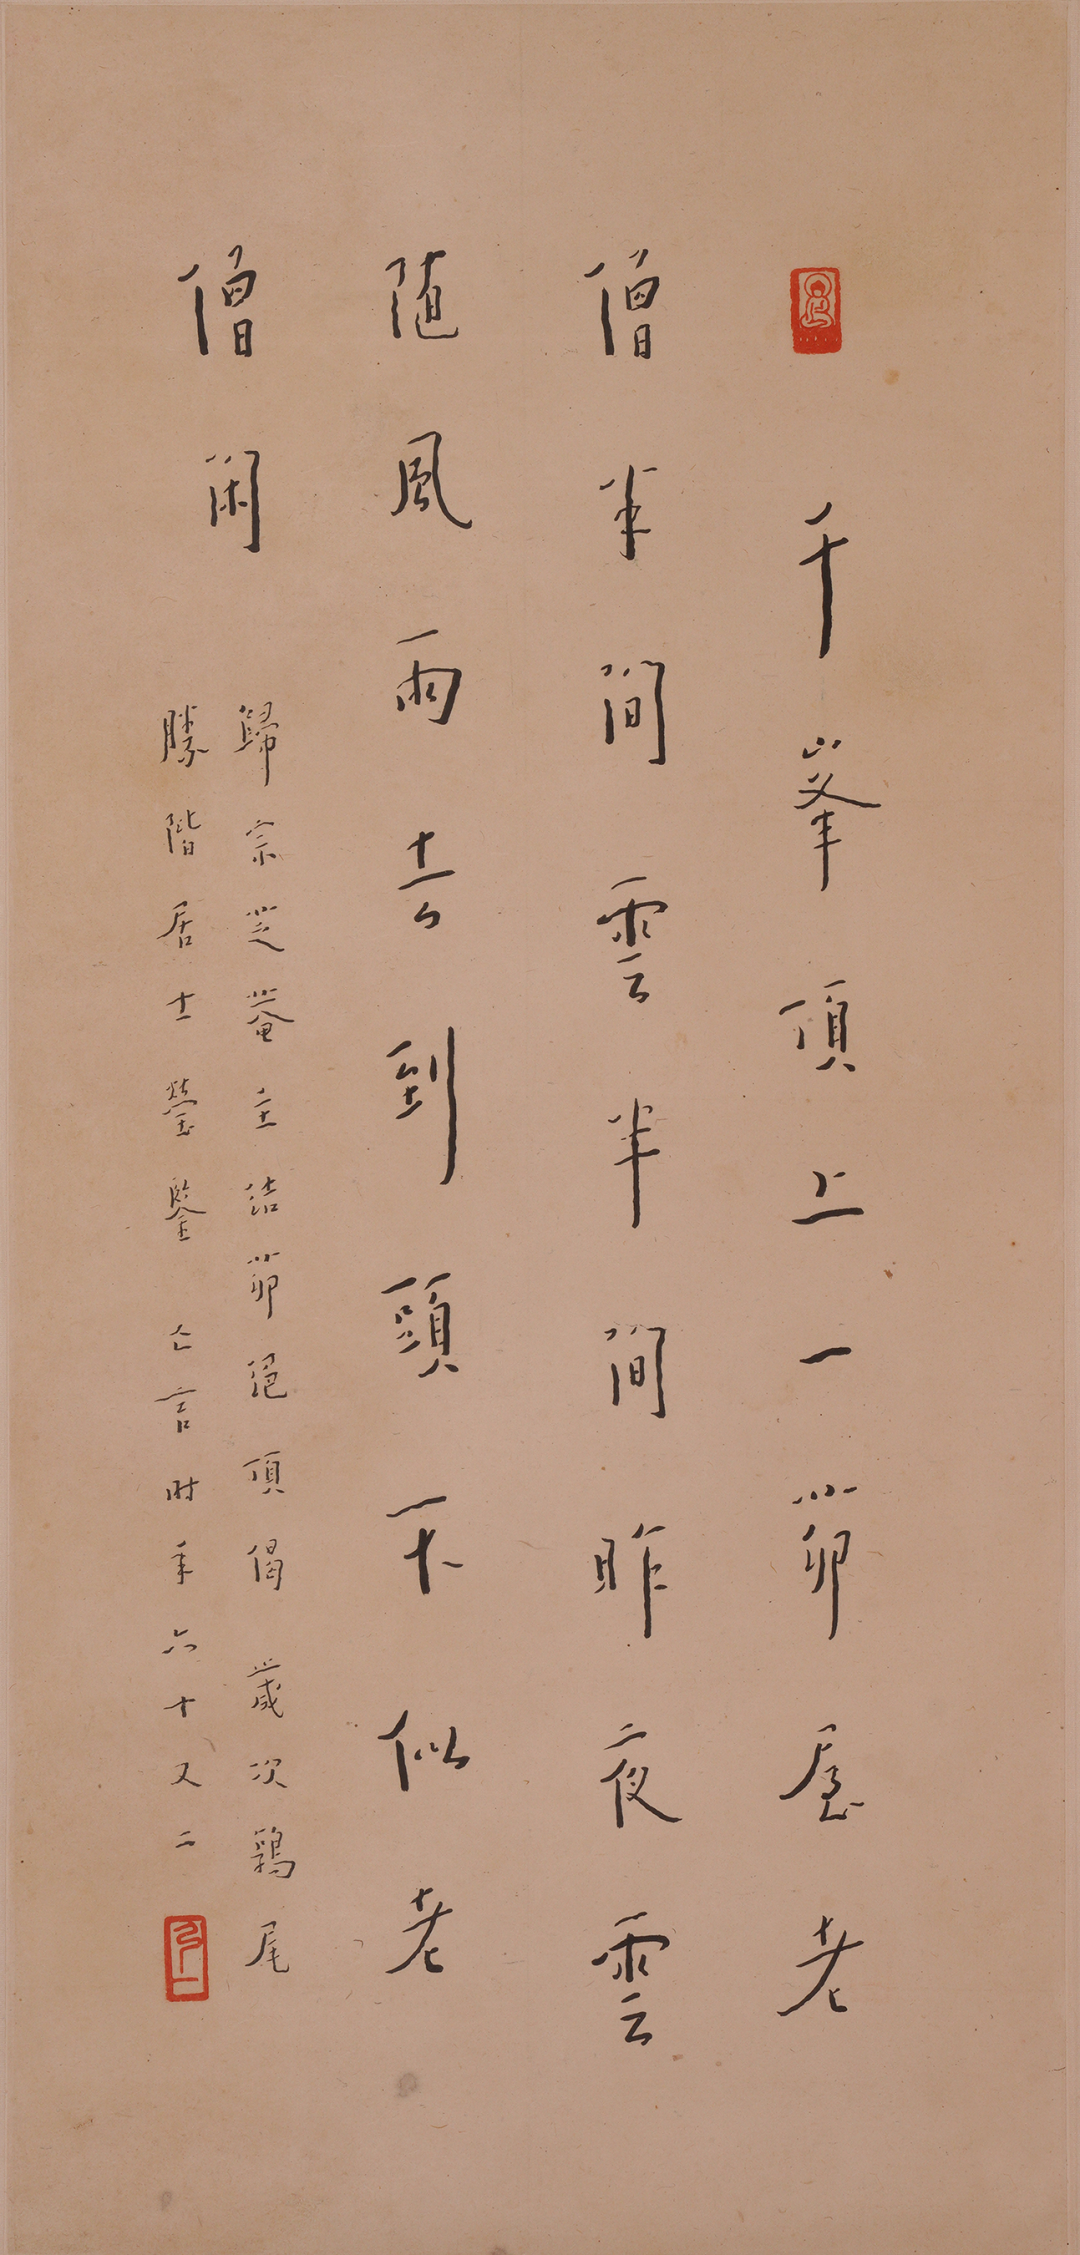 千峯頂上一茆屋老
僧半間雲半間昨夜雲
随風雨去到頭不似老
僧閑
歸宗芝菴主結茆絕頂偈 歲次鶉尾
勝階居士瑩鑒 亡言時年六十又二
弘一